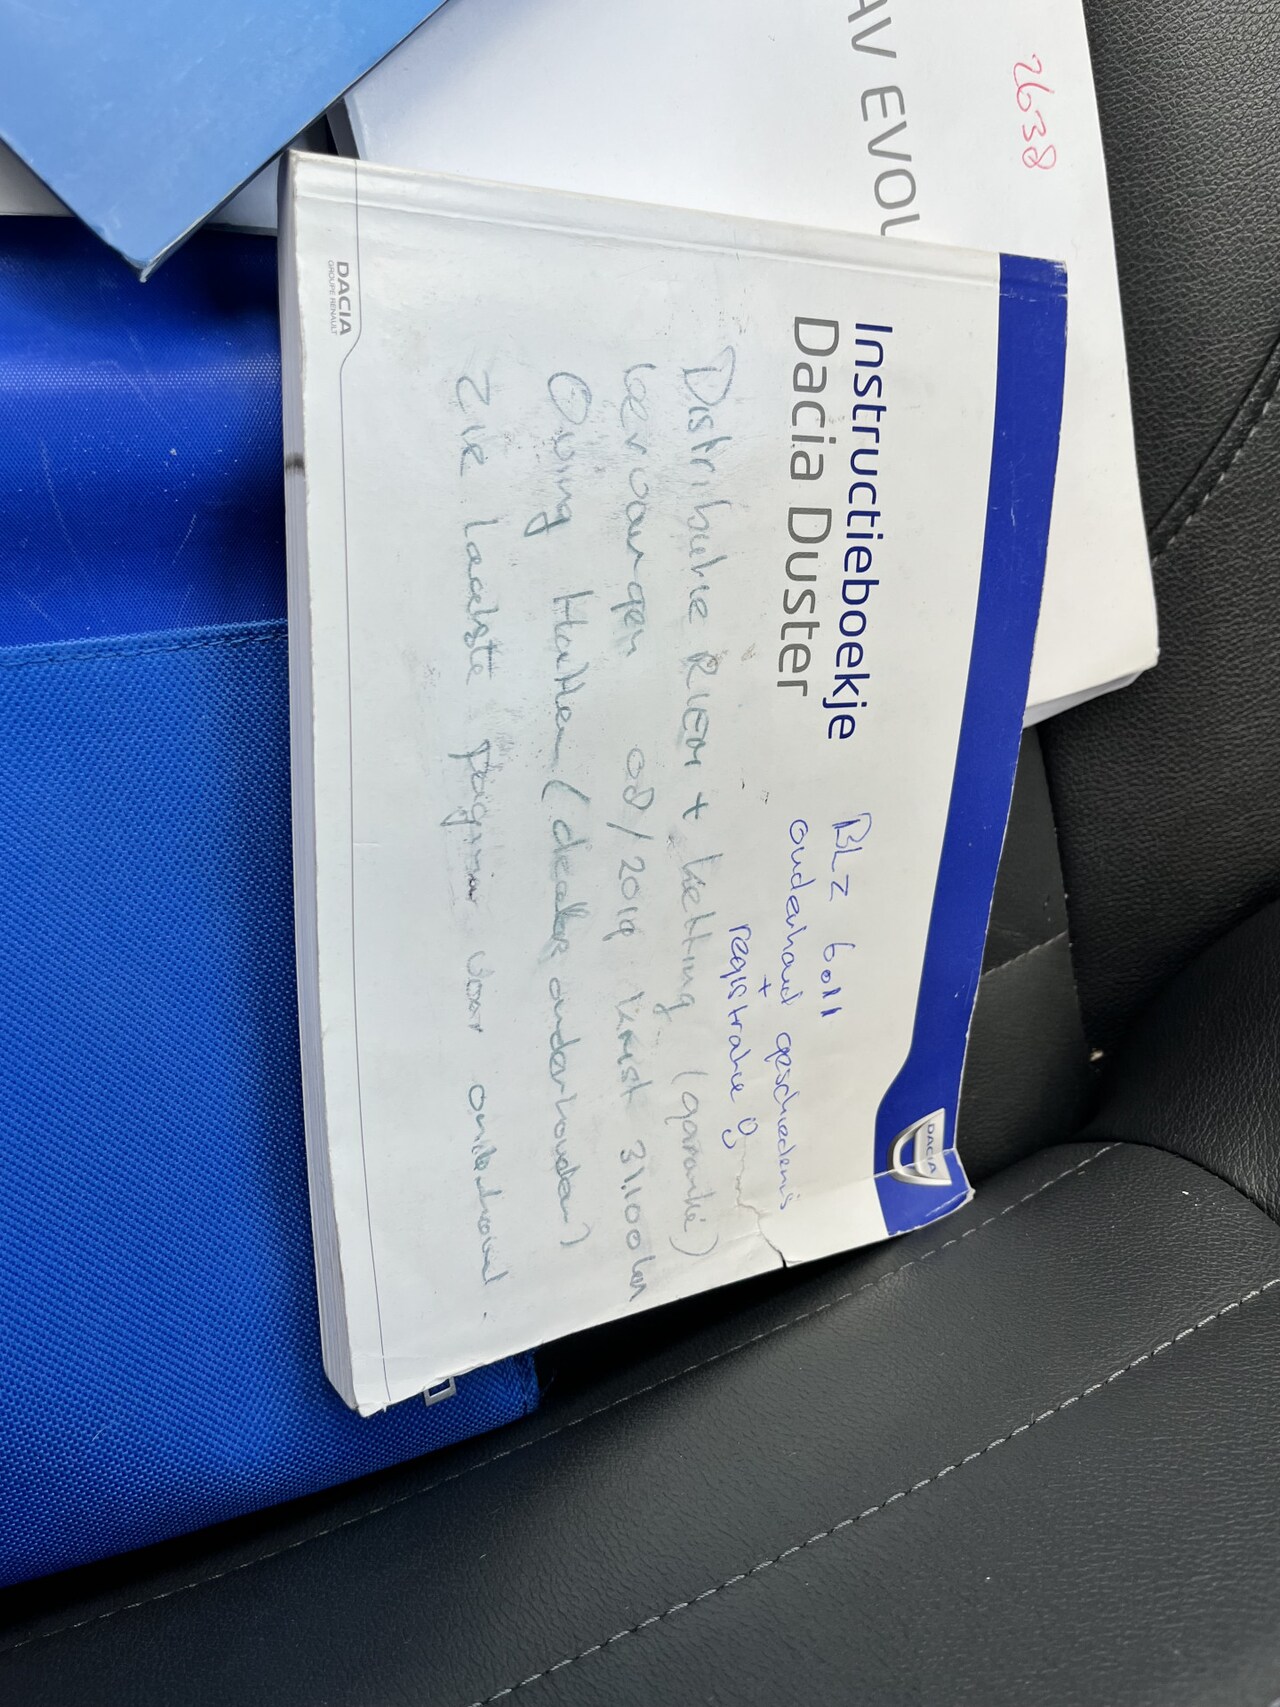 AV EVOL
2638
Instructieboekje
Dacia Duster
BLZ 6.011
ouderhoud geschiedenis
+
registratie
Distributie RIEM + ketting (garantie)
vervangen 08/2019 KMst 31.100 km
Oving Hatten (dealer onderhouden)
ZIE laatste pagina voor onderhoud.
DACIA
GROUPE RENAULT
DACIA